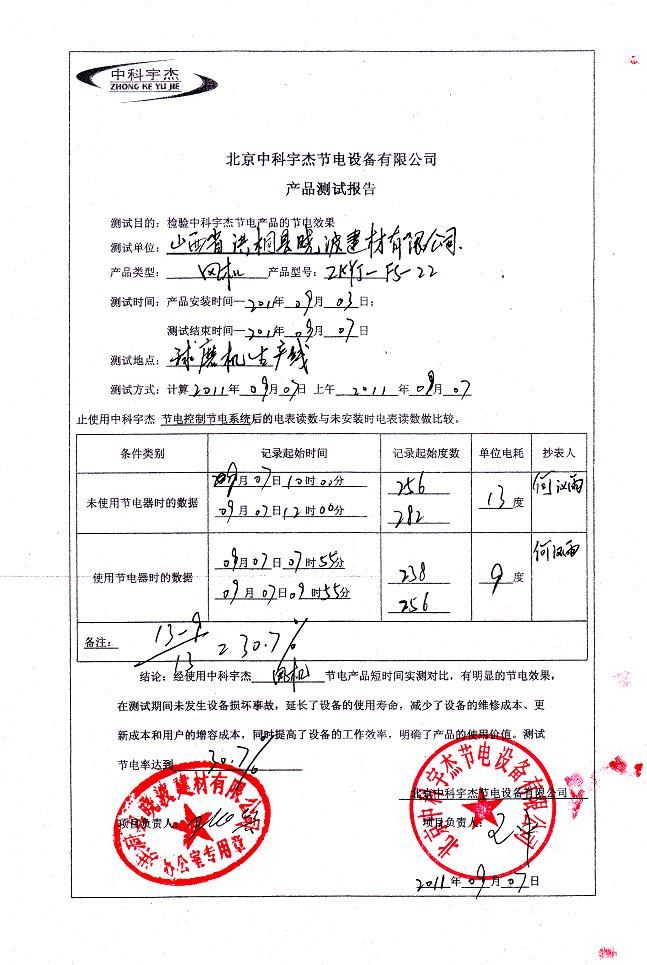 中科宇杰
ZHONG KE YU JIE
北京中科宇杰节电设备有限公司
产品测试报告
测试目的：检验中科宇杰节电产品的节电效果
测试单位：山西省洪桐县晓波建材有限公司.
产品类型：风机 产品型号：ZKYJ-FS-22
测试时间：产品安装时间—2011年09月03日；
测试结束时间—2011年09月07日
测试地点：球磨机生产线
测试方式：计算2011年09月07日 上午 2011年09月07
止使用中科宇杰 节电控制节电系统后的电表读数与未安装时电表读数做比较。
条件类别 记录起始时间 记录起始度数 单位电耗 抄表人
未使用节电器时的数据 09月07日10时00分 256 13度
09月07日12时00分 282
使用节电器时的数据 09月07日07时55分 238 9度
09月07日09时55分 256
备注： 13-9/13=30.7%
结论：经使用中科宇杰 风机 节电产品短时间实测对比，有明显的节电效果，
在测试期间未发生设备损坏事故，延长了设备的使用寿命，减少了设备的维修成本、更
新成本和用户的增容成本，同时提高了设备的工作效率，明确了产品的使用价值。测试
节电率达到 30.7%
北京中科宇杰节电设备有限公司
项目负责人： 项目负责人：
办公室专用章
北京中科宇杰节电设备有限公司
2011年09月07日